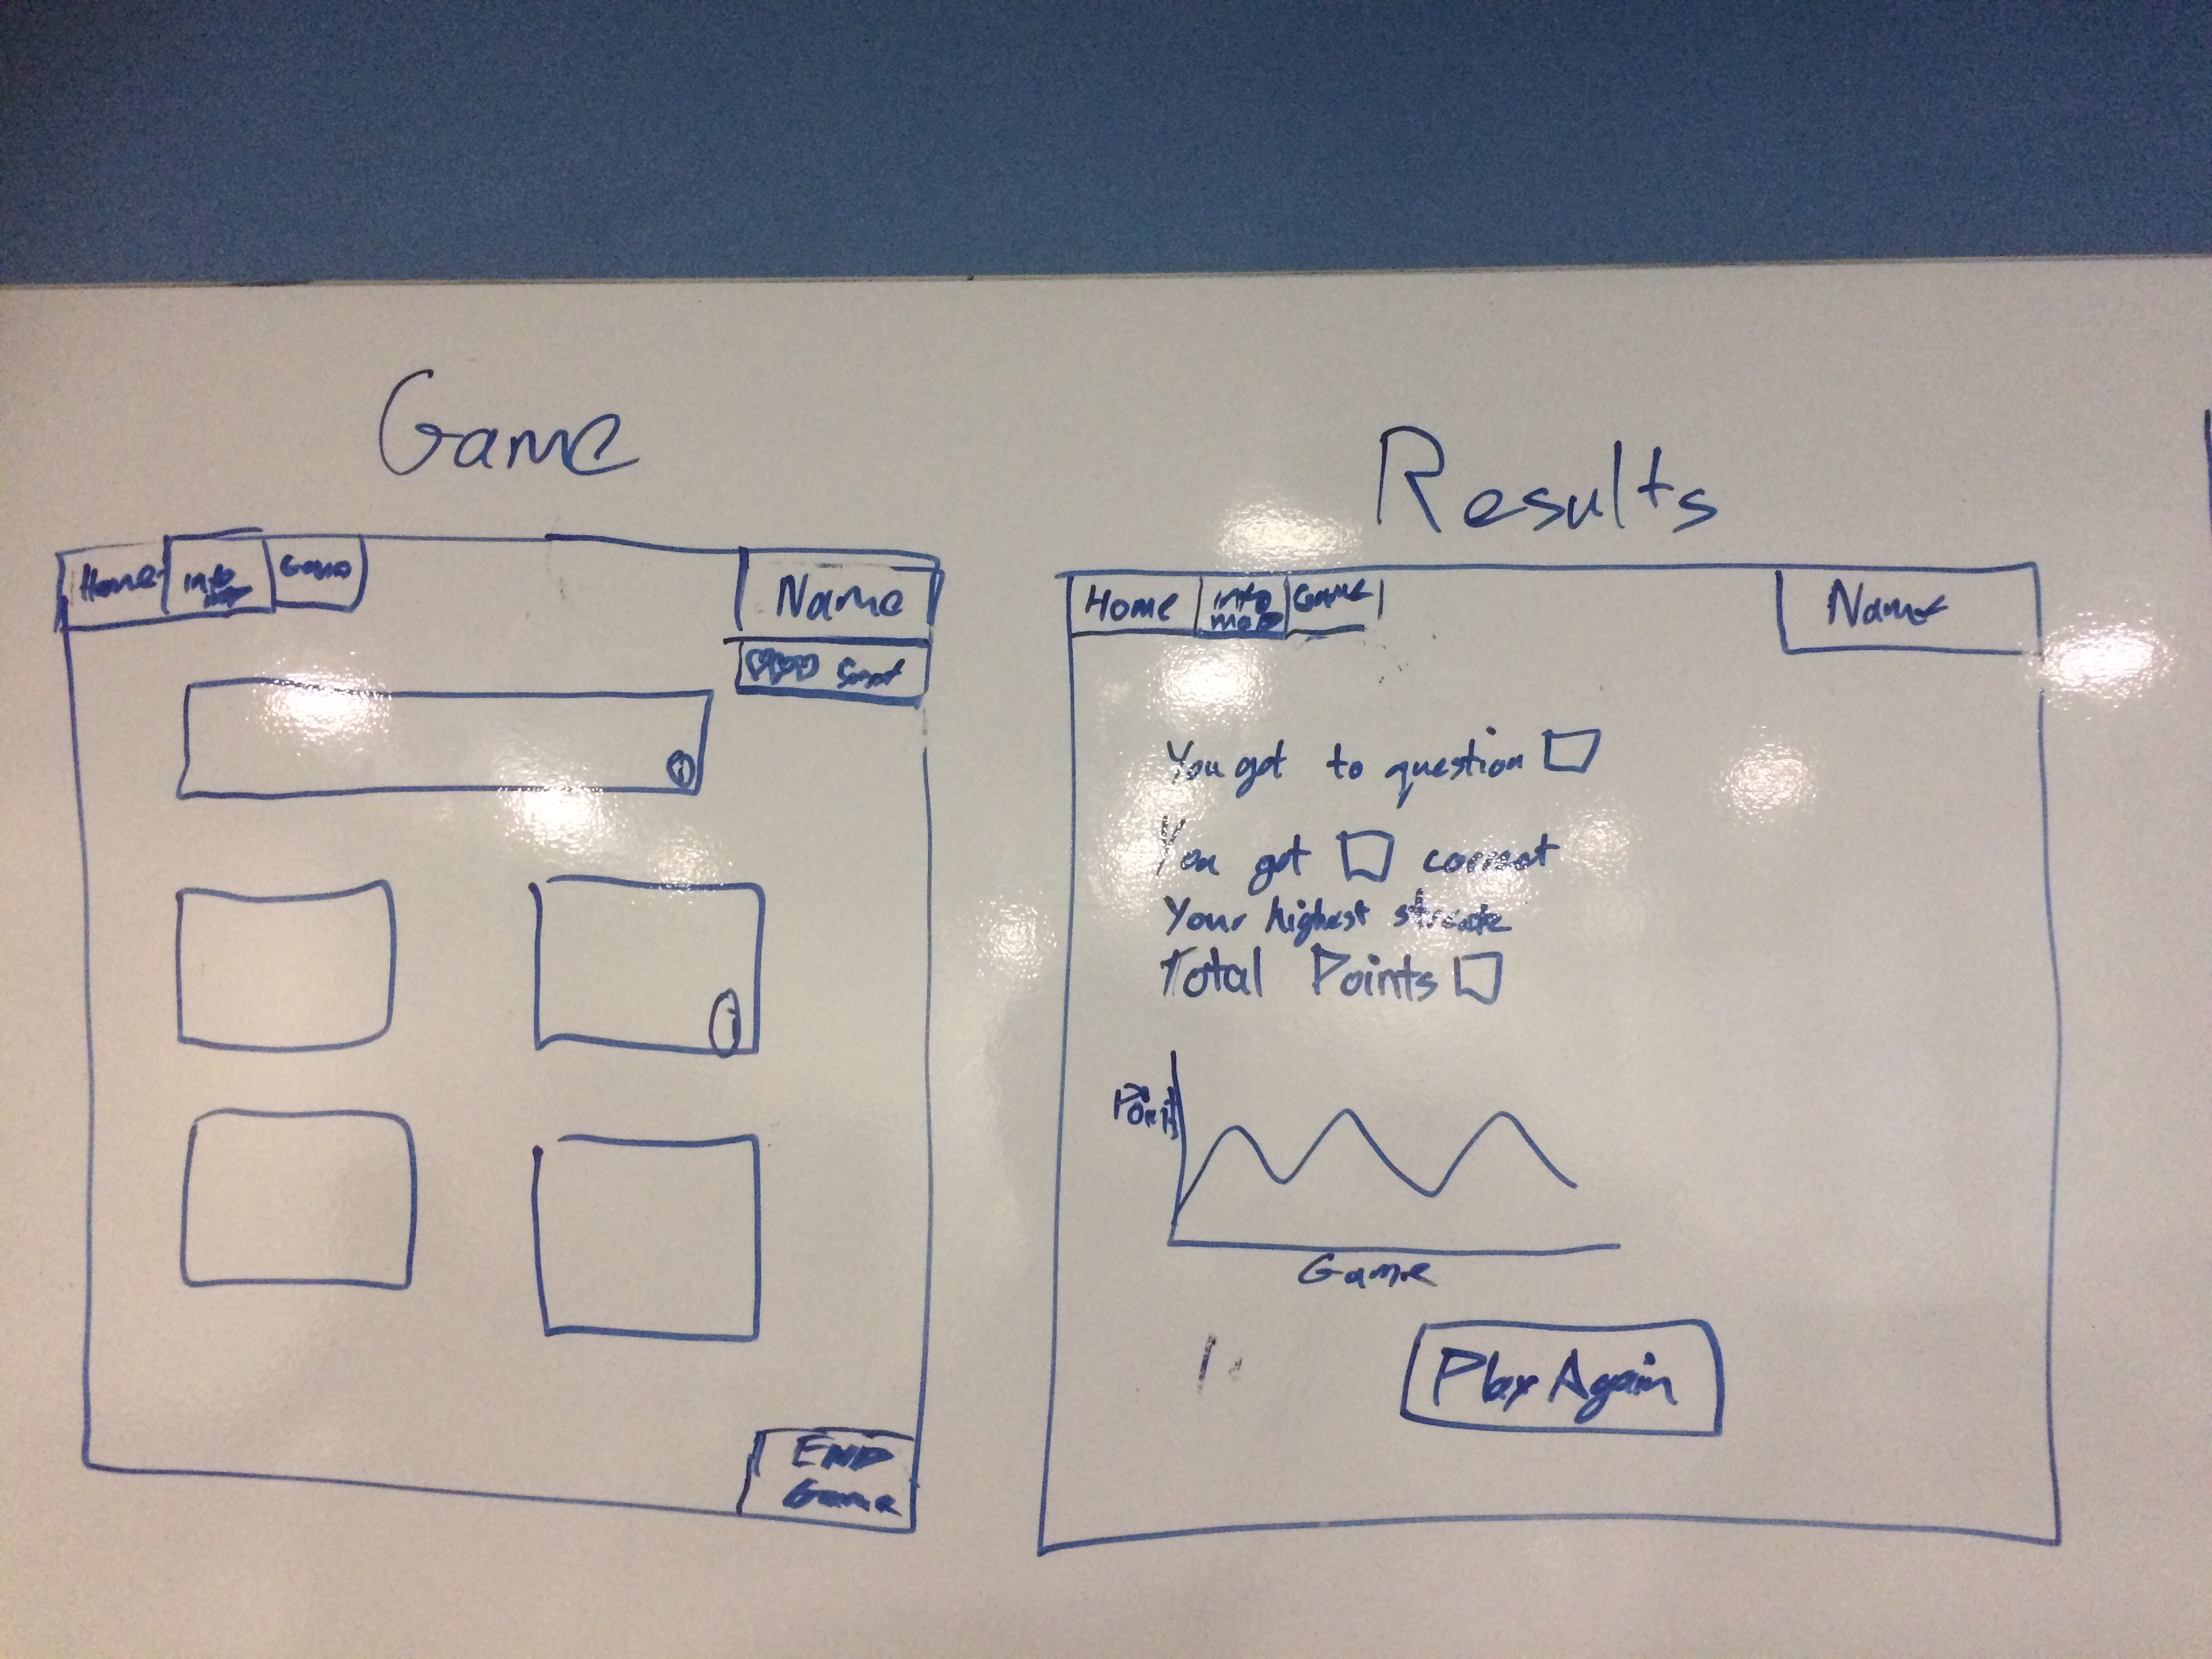 Game
Results
Home
info
Game
Name
i
i
END
Game
Home
info
map
Game
Name
You got to question
You got correct
Your highest streak
Total Points
Points
Game
Play Again